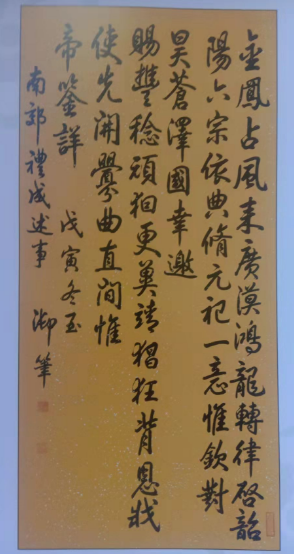 金鳳占風来廣漠鴻龍轉律啓韶
陽六宗依典脩元祀一意惟欽對
昊蒼澤國幸邀
賜豐稔頑更冀靖猖狂背恩戕
使先開釁曲直間惟
帝鉴詳
戊寅冬至
南郊禮成述事
御筆